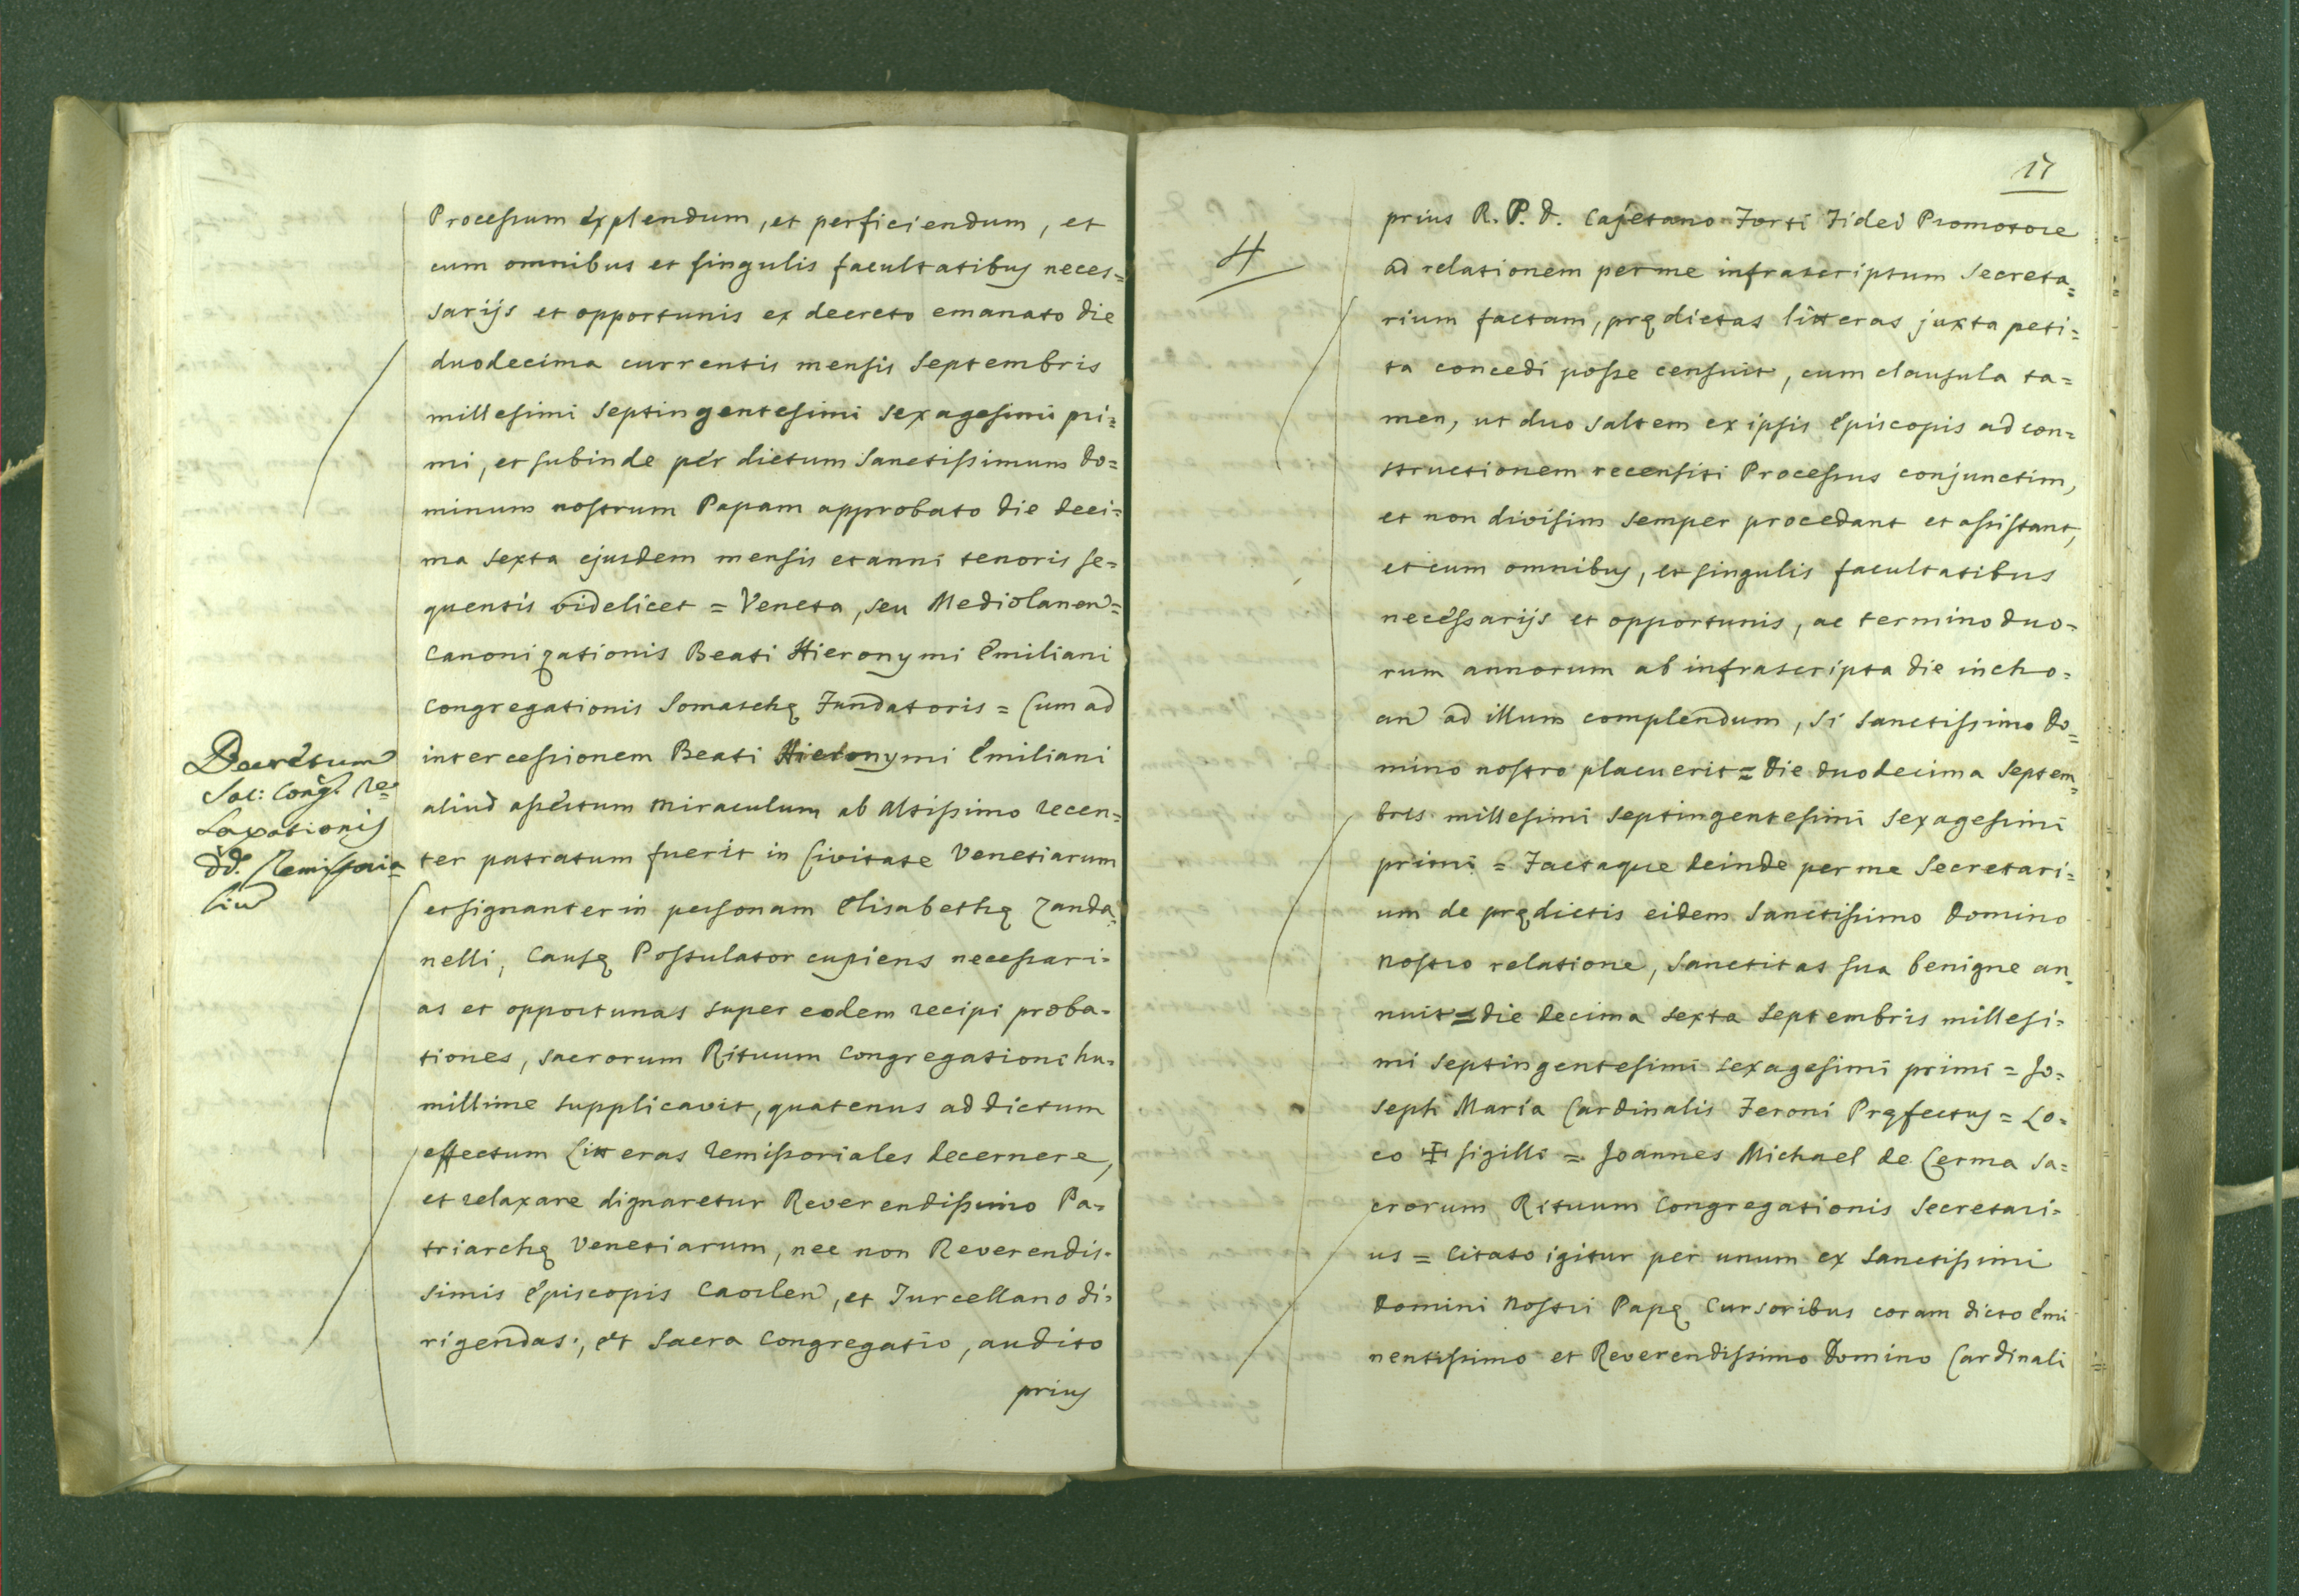 Processum explendum, et perficiendum, et
cum omnibus et singulis facultatibus neces=
sarijs et opportunis ex decreto emanato die
duodecima currentis mensis Septembris
millesimi Septingentesimi sexagesimi pri=
mi, et subinde per dictum Sanctissimum Do=
minum nostrum Papam approbato die deci=
ma sexta ejusdem mensis et anni tenoris se=
quentis videlicet = Veneta, seu Mediolanen=
Canonizationis Beati Hieronymi Emiliani
Congregationis Somaschę Fundatoris = Cum ad
intercessionem Beati Hieronymi Emiliani
aliud assertum miraculum ab Altissimo recen=
ter patratum fuerit in Civitate Venetiarum
et signanter in personam Elisabethę Zanda=
nelli, Causę Postulator cupiens necessari=
as et opportunas super eodem recipi proba=
tiones, sacrorum Rituum Congregationi hu=
millime supplicavit, quatenus ad dictum
effectum Litteras remissoriales decernere,
et relaxare dignaretur Reverendissimo Pa=
triarchę Venetiarum, nec non Reverendis=
simis Episcopis Caorlen, et Turcellano di=
rigendas; et Sacra Congregatio, audito
prius
Decretum
Sac: Cong. re=
laxationis
dd. Remissoria=
liu
17
4
prius R. P. D. Cajetano Forti Fidei Promotore
ad relationem per me infrascriptum Secreta=
rium factam, prędictas litteras juxta peti=
ta concedi posse censuit, cum clausula ta=
men, ut duo saltem ex ipsis Episcopis ad con=
structionem recensiti Processus conjunctim,
et non divisim semper procedant et assistant,
et cum omnibus, et singulis facultatibus
necessarijs et opportunis, ac termino duo=
rum annorum ab infrascripta die incho=
an ad illum complendum, si Sanctissimo Do=
mino nostro placuerit = Die duodecima Septem=
bris millesimi Septingentesimi sexagesimi
primi = Factaque deinde per me Secretari=
um de prędictis eidem Sanctissimo Domino
nostro relatione, Sanctitas sua benigne an=
nuit = die decima sexta Septembris millesi=
mi septingentesimi sexagesimi primi = Jo=
seph Maria Cardinalis Feroni Pręfectus = Lo=
co ✠ sigilli = Joannes Michael de Cerma Sa=
crorum Rituum Congregationis Secretari=
us = Citato igitur per unum ex Sanctissimi
Domini Nostri Papę Cursoribus coram dicto Emi
nentissimo et Reverendissimo Domino Cardinali